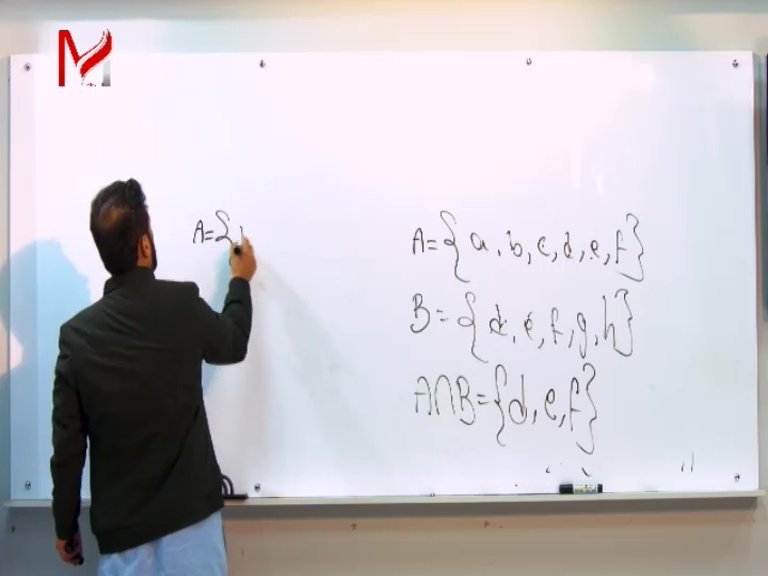 A={
A={a,b,c,d,e,f}
B={d,e,f,g,h}
A∩B={d,e,f}